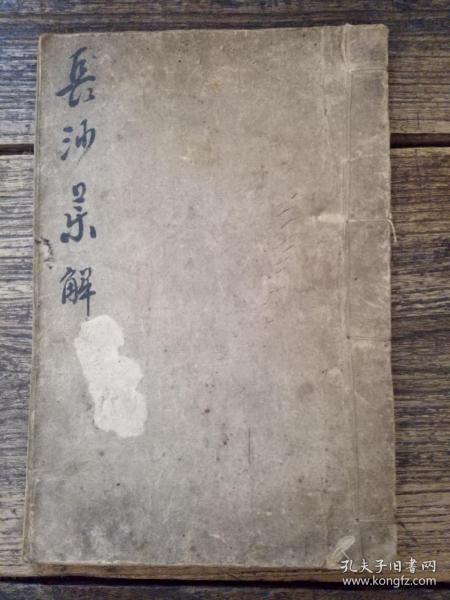 長沙药解
孔夫子旧书网
www.kongfz.com